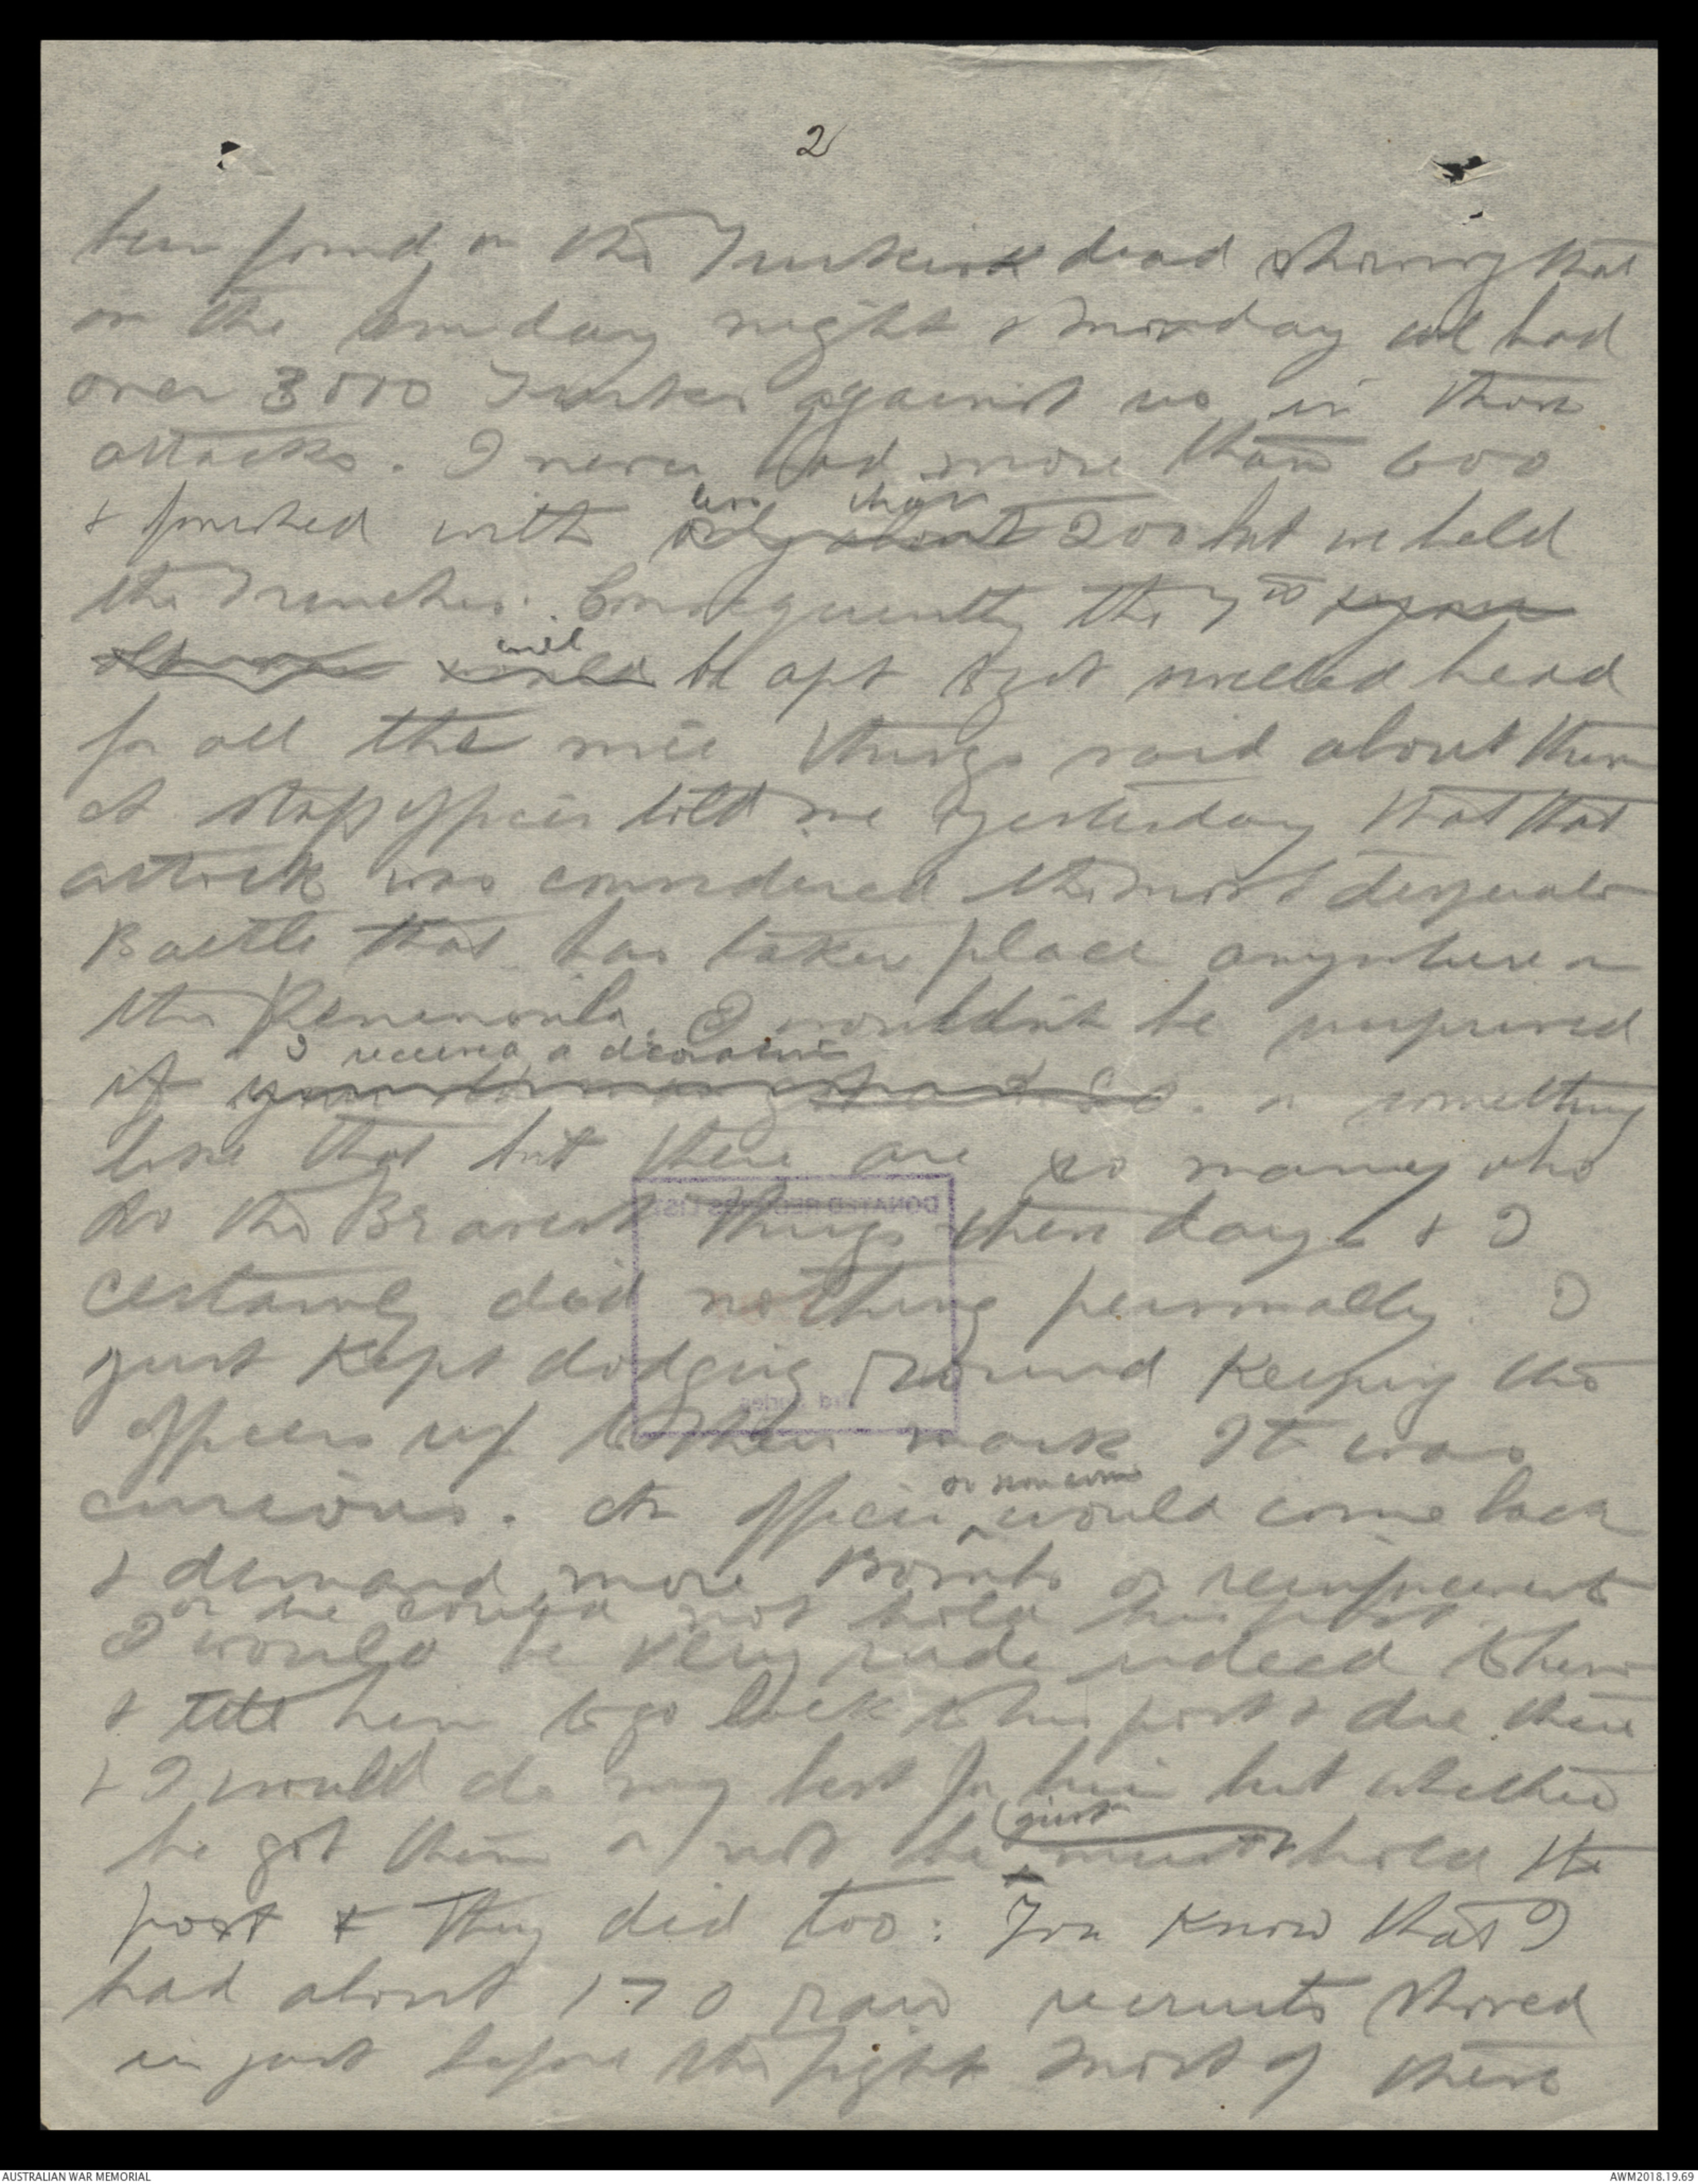 2
been found on the Turkish dead showing that
on the Sunday night & Monday we had
over 3000 Turks against us in those
attacks. I never had more than 600
less than
& finished with only about 200 but we held
the Trenches. Consequently the 7th
will
would be apt to get swelled head
for all the nice things said about them
A staff officer told me yesterday that that
attack was considered the most desperate
Battle that has taken place anywhere on
the Peninsula. I wouldn't be surprised
I received a decoration
if your old man got a D.S.O. or something
like that but there are so many who
do the Bravest things these days & I
certainly did nothing personally. I
just kept dodging round keeping the
officers up to their work It was
or someone
curious. An officer ^ would come back
& demand more Bombs or reinforcements
or he could not hold his post
I would be very rude indeed to him
& tell him to go back to his post & die there
& I would do my best for him but whether
just
he got them or not he must hold the
post & they did too: You know that I
had about 170 raw recruits shoved
in just before the fight most of them
DONATED RECORDS LIST
3rd Series
AUSTRALIAN WAR MEMORIAL
AWM2018.19.69